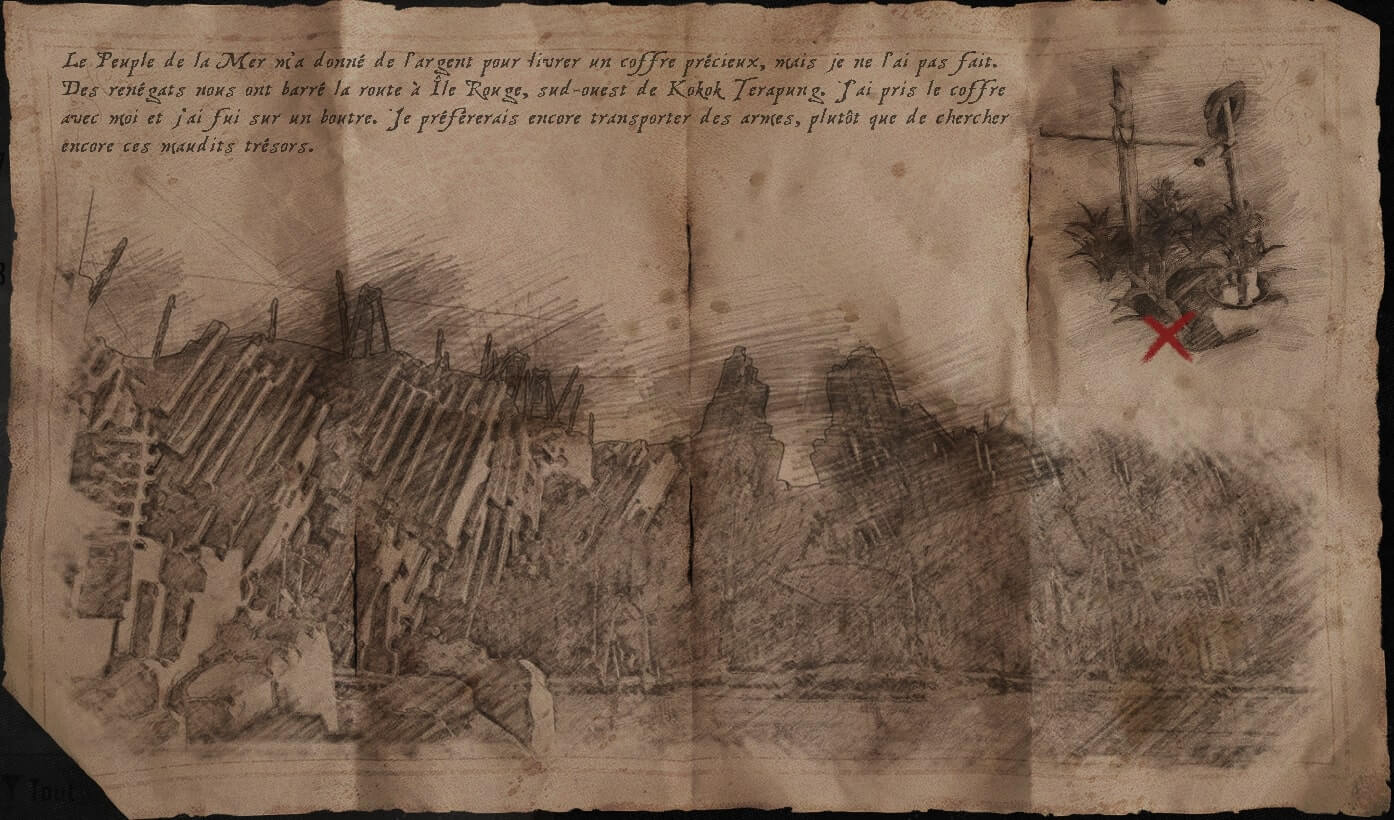 Le Peuple de la Mer m'a donné de l'argent pour livrer un coffre précieux, mais je ne l'ai pas fait.
Des renégats nous ont barré la route à Île Rouge, sud-ouest de Kokok Terapung. J'ai pris le coffre
avec moi et j'ai fui sur un boutre. Je préférerais encore transporter des armes, plutôt que de chercher
encore ces maudits trésors.
Y Tout